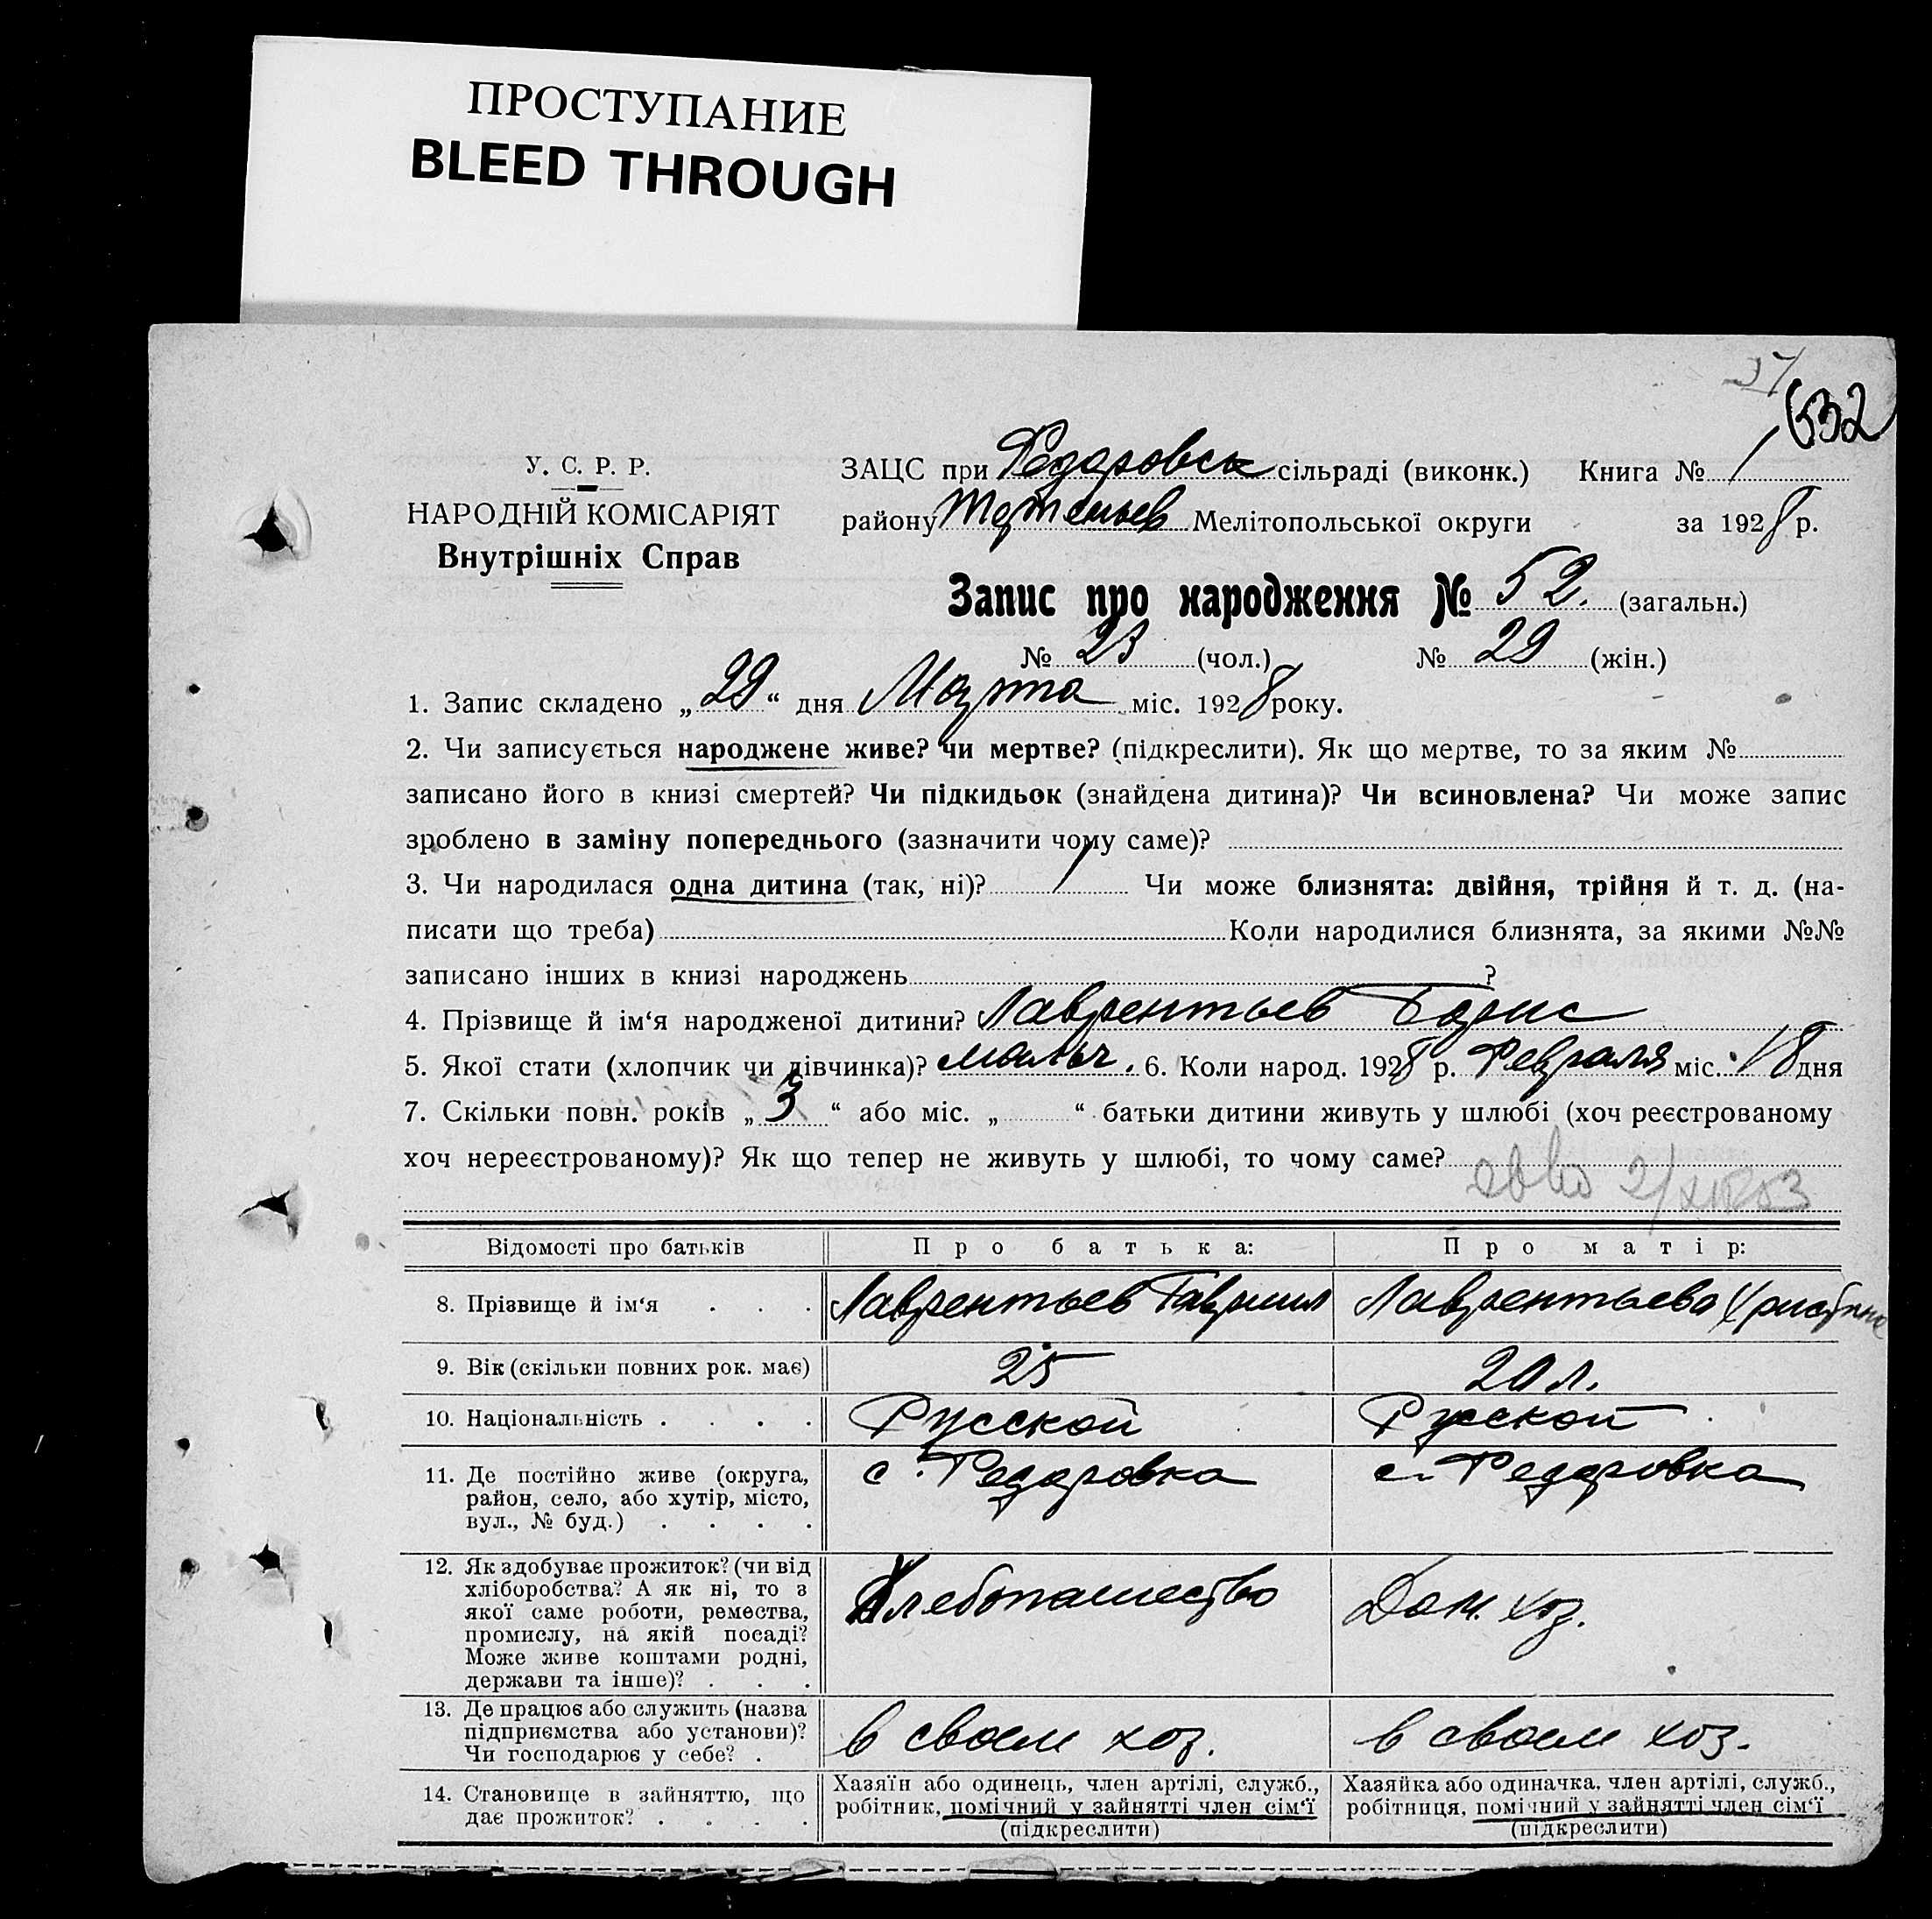 ПРОСТУПАНИЕ
BLEED THROUGH
632
У. С. Р. Р.
НАРОДНІЙ КОМІСАРІЯТ
Внутрішніх Справ
ЗАЦС при Федоровск сільраді (виконк.) Книга № 1
району Мелітопольської округи за 1928 р.
Запис про народження № 52. (загальн.)
№ 23 (чол.) № 29 (жін.)
1. Запис складено „29“ дня Марта міс. 1928 року.
2. Чи записується народжене живе? чи мертве? (підкреслити). Як що мертве, то за яким №
записано його в книзі смертей? Чи підкидьок (знайдена дитина)? Чи всиновлена? Чи може запис
зроблено в заміну попереднього (зазначити чому саме)?
3. Чи народилася одна дитина (так, ні)? 1 Чи може близнята: двійня, трійня й т. д. (на-
писати що треба) Коли народилися близнята, за якими №№
записано інших в книзі народжень ?
4. Прізвище й ім‘я народженої дитини? Лаврентьев Борис
5. Якої стати (хлопчик чи дівчинка)? мальч. 6. Коли народ. 1928 р. Февраля міс. 18 дня
7. Скільки повн. років „3“ або міс. „ “ батьки дитини живуть у шлюбі (хоч реєстрованому
хоч нереєстрованому)? Як що тепер не живуть у шлюбі, то чому саме?
Відомості про батьків Про батька: Про матір:
8. Прізвище й ім‘я . . . Лаврентьев Гавриил Лаврентьева Христина
9. Вік (скільки повних рок. має) 25 20 л.
10. Національність . . . . Русской Русской
11. Де постійно живе (округа, с. Федоровка с. Федоровка
район, село, або хутір, місто,
вул., № буд.) . . . .
12. Як здобуває прожиток? (чи від
хліборобства? А як ні, то з
якої саме роботи, ремества, Хлебопашество Дом. хоз.
промислу, на якій посаді?
Може живе коштами родні,
держави та інше)? . . .
13. Де працює або служить (назва
підприємства або установи)? в своем хоз. в своем хоз.
Чи господарює у себе? .
14. Становище в зайняттю, що
дає прожиток? . . . .
Хазяїн або одинець, член артілі, служб.,
робітник, помічний у зайнятті член сім‘ї
(підкреслити)
Хазяйка або одиначка, член артілі, служб.,
робітниця, помічний у зайнятті член сім‘ї
(підкреслити)